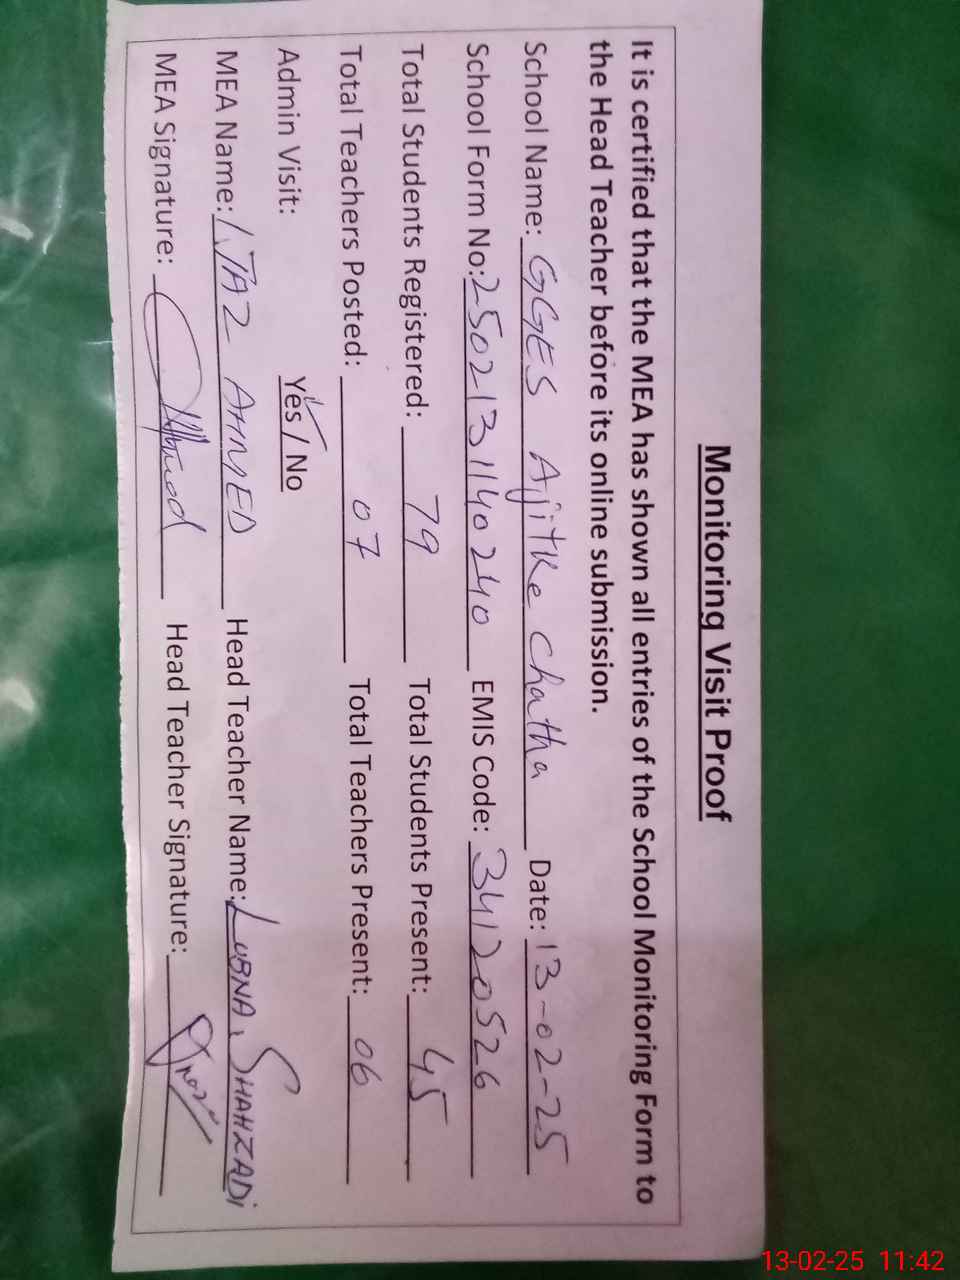 Monitoring Visit Proof
It is certified that the MEA has shown all entries of the School Monitoring Form to
the Head Teacher before its online submission.
School Name: GGES Ajitke chatha Date: 13-02-25
School Form No: 2502131140240 EMIS Code: 34120526
Total Students Registered: 79 Total Students Present: 45
Total Teachers Posted: 07 Total Teachers Present: 06
Admin Visit: Yes / No
MEA Name: IJAZ AHMED Head Teacher Name: LUBNA, SHAHZADi
MEA Signature: Head Teacher Signature:
13-02-25 11:42